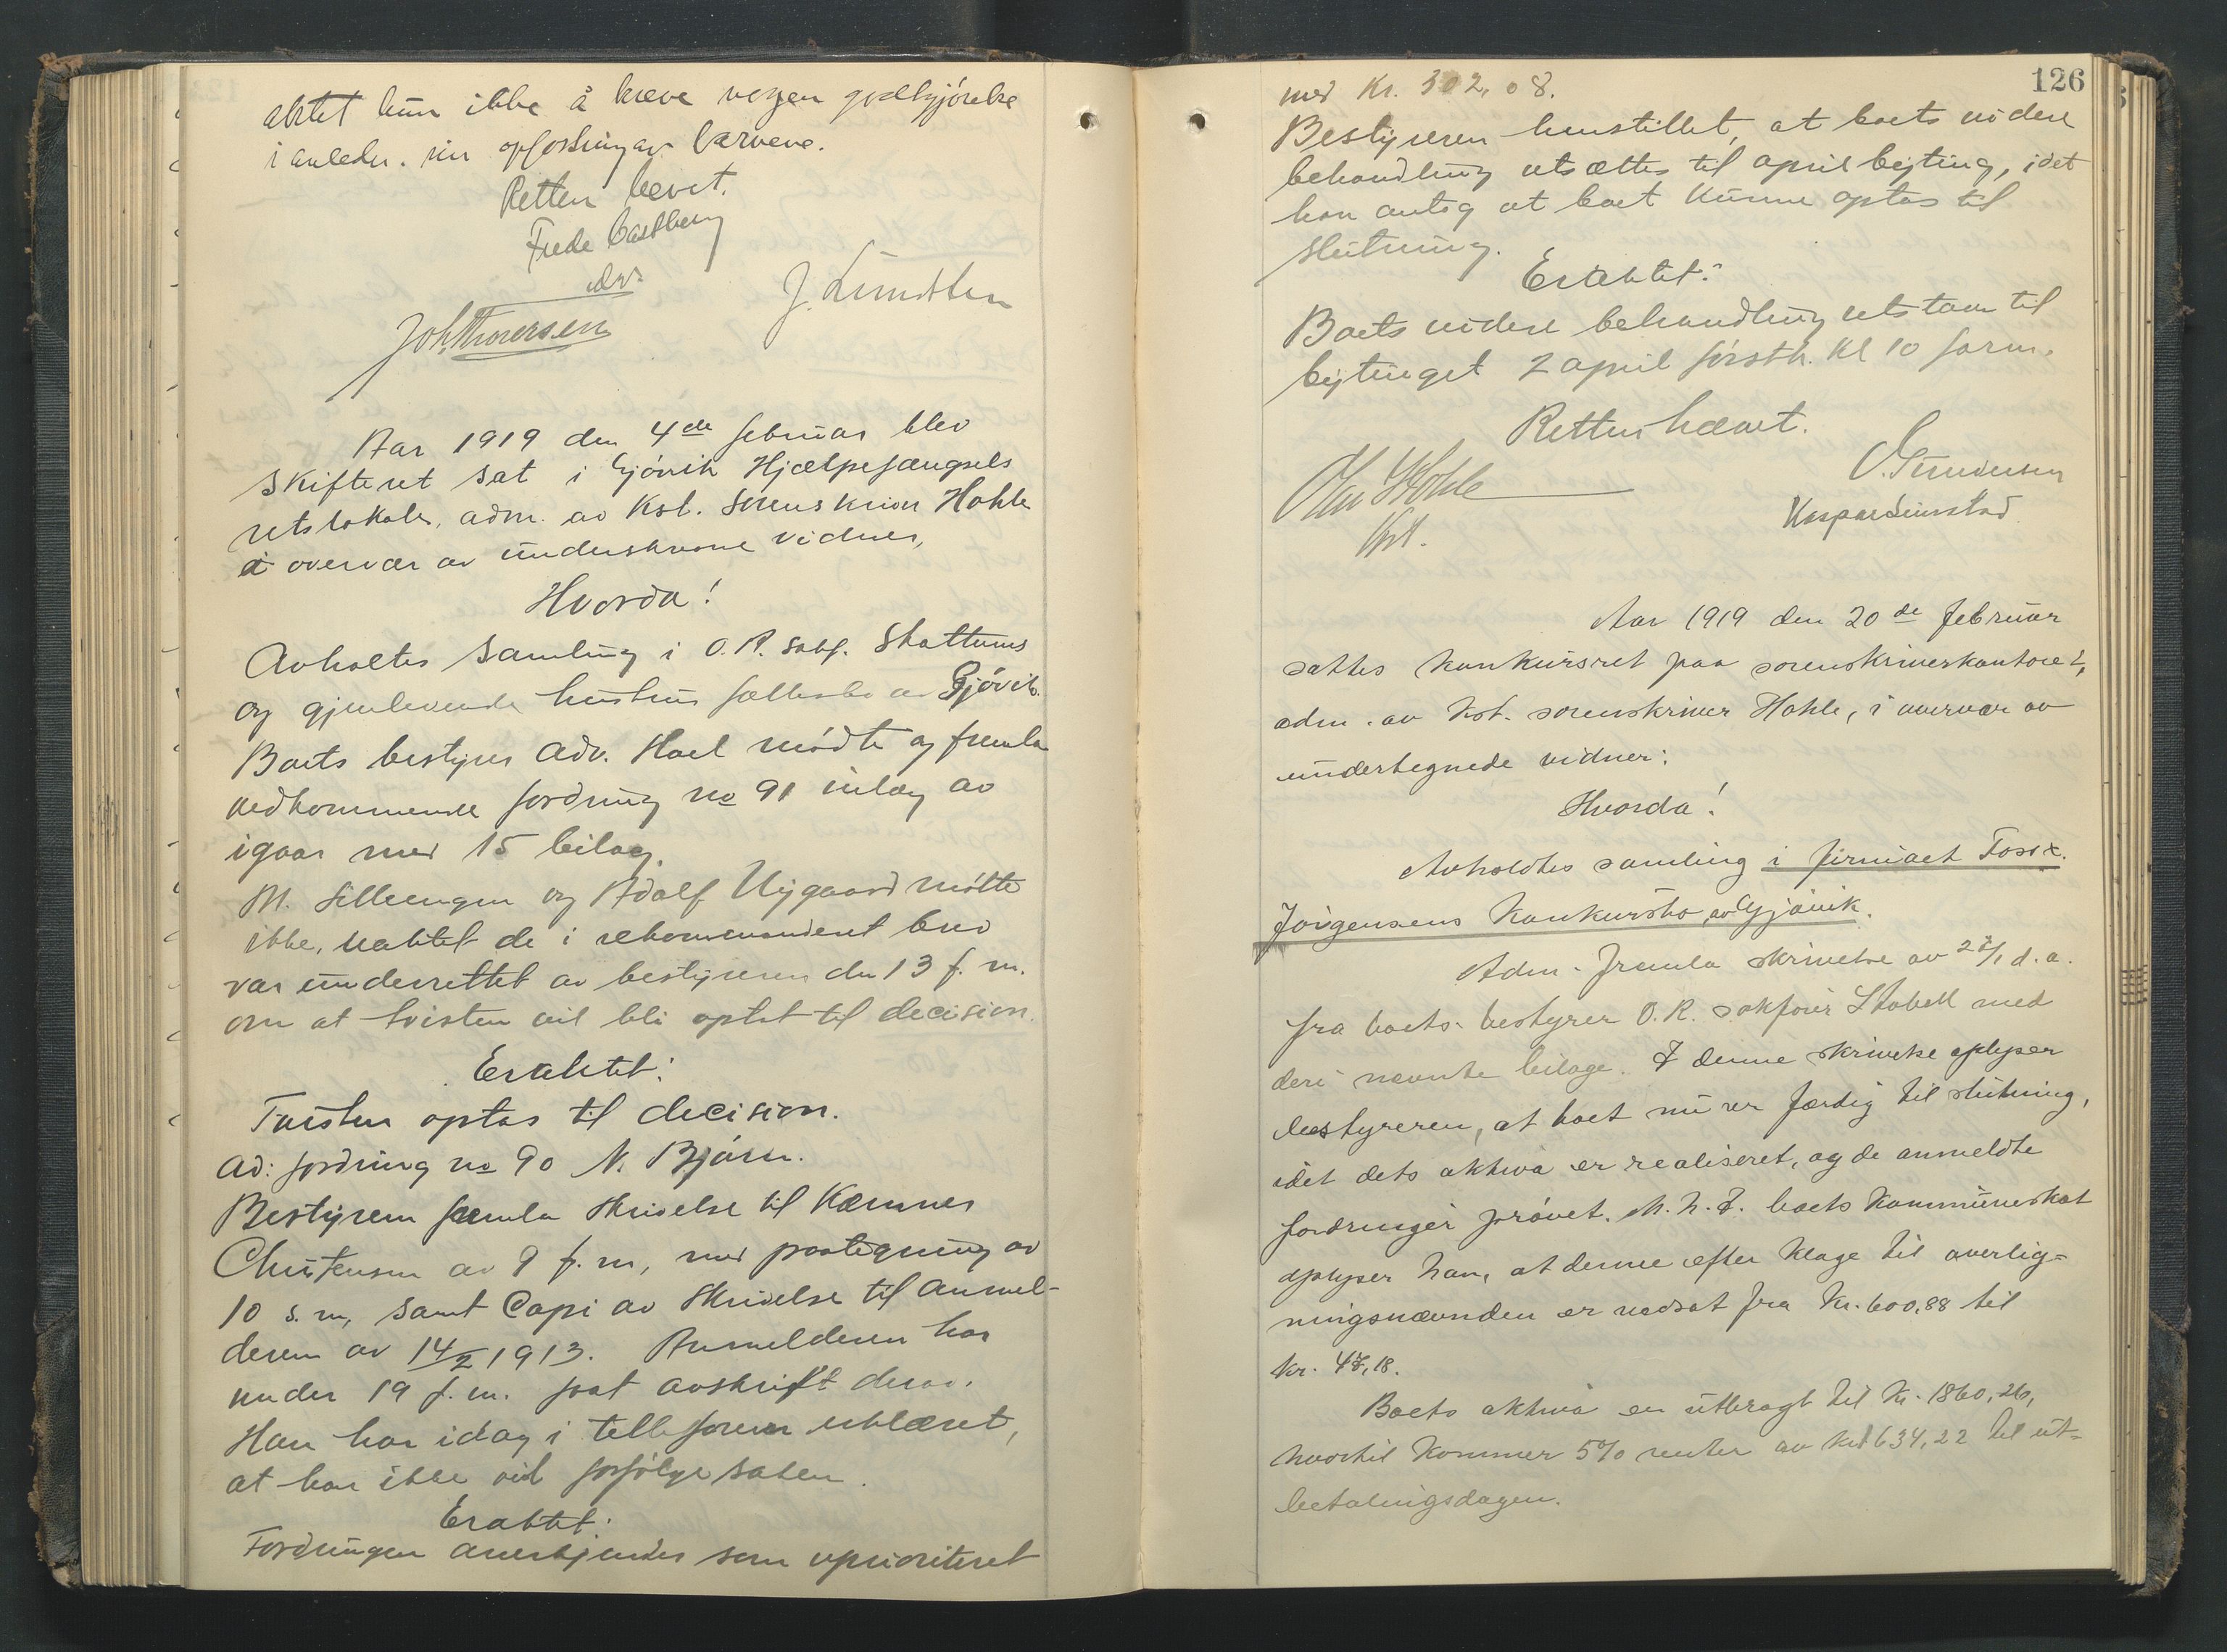 aktet hun ikke å kræve nogen godtgjörelse
i anledn. sin opfostring av barnene.
Retten hævet.
Frede Castberg
dvs.
Joh. Thoresen
J. Lundsten
Aar 1919 den 4de februar blev
skifteret sat i Gjövik Hjælpefængsels
retslokale, adm. av Kst. Sorenskriver Hohle
i overvær av underskrevne vidner,
Hvorda!
Avholtes samling i O.R. sakf. Skattums
og gjenlevende hustrus fællesbo av Gjövik.
Boets bestyrer adv. Hoel mödte og freml.
vedkommende fordring no 91 inlæg av
igaar med 15 bilag.
M. Lilleengen og Adolf Nygaard mötte
ikke, uaktet de i rekommandert brev
var underrettet av bestyreren den 13 f. m.
om at tvisten vil bli optat til decision.
Eraktet:
Tvisten optas til decision.
ad: fordring no 90 N. Björn.
Bestyreren fremla skrivelse til Kæmner
Christensen av 9 f. m, med paategning av
10 s. m, samt Copi av skrivelse til anmel-
deren av 14/2 1913. Anmelderen har
under 19 f. m. faat avskrift derav.
Han har idag i tellefonen erklæret,
at han ikke vil forfölge saken.
Eraktet:
Fordringen anerkjendes som uprioriteret
126
med Kr. 302,08.
Bestyreren henstillet, at boets videre
behandling utsættes til april byting, idet
han antog at boet kunne optas til
slutning.
Eraktet:
Boets videre behandling utstaar til
bytinget 2 april förstk. Kl 10 form.
Retten hævet.
Hohle
Kst.
O. Gundersen
Kaspar Linstad
Aar 1919 den 20de februar
sattes konkursret paa sorenskriverkontoret,
adm. av kst. sorenskriver Hohle, i overvær av
undertegnede vidner:
Hvorda!
Avholdtes samling i firmaet Foss &
Jörgensens konkursbo, av Gjövik.
Adm. fremla skrivelse av 28/1 d. a.
fra boets bestyrer O.R. sakförer Stabell med
deri nævnte bilage. I denne skrivelse oplyser
bestyreren, at boet nu er færdig til slutning,
idet dets aktiva er realiseret, og de anmeldte
fordringer prövet. M. h. t. boets kommuneskat
oplyser han, at denne efter klage til overlig-
ningsnævnden er nedsat fra Kr. 600,88 til
Kr. 47,18.
Boets aktiva er utbragt til Kr. 1860,26,
hvortil kommer 5% renter av Kr 1634,22 til ut-
betalingsdagen.